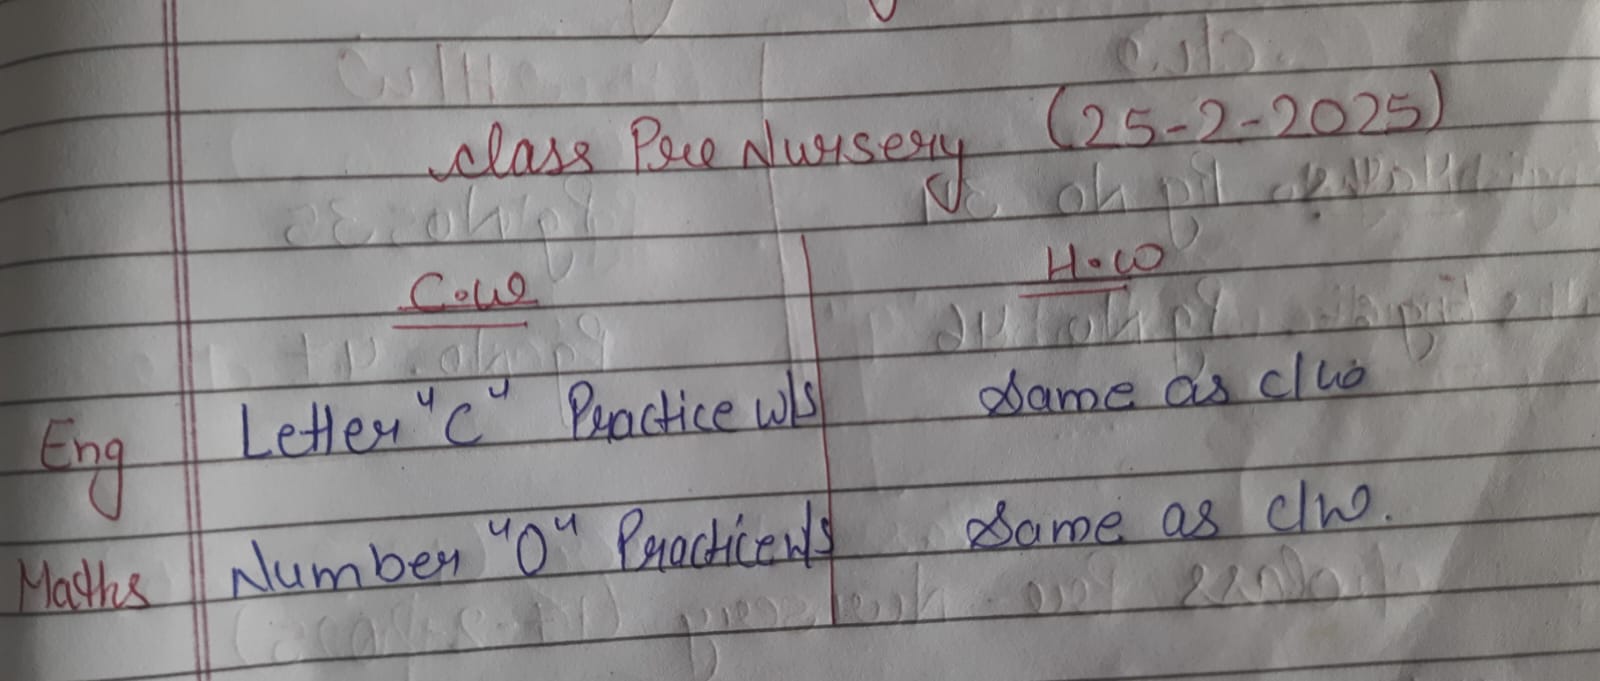 Class Pre Nursery (25-2-2025)
C.W H.W
Eng Letter "C" Practice W/S Same as c/w
Maths Number "0" Practice W/S Same as c/w.